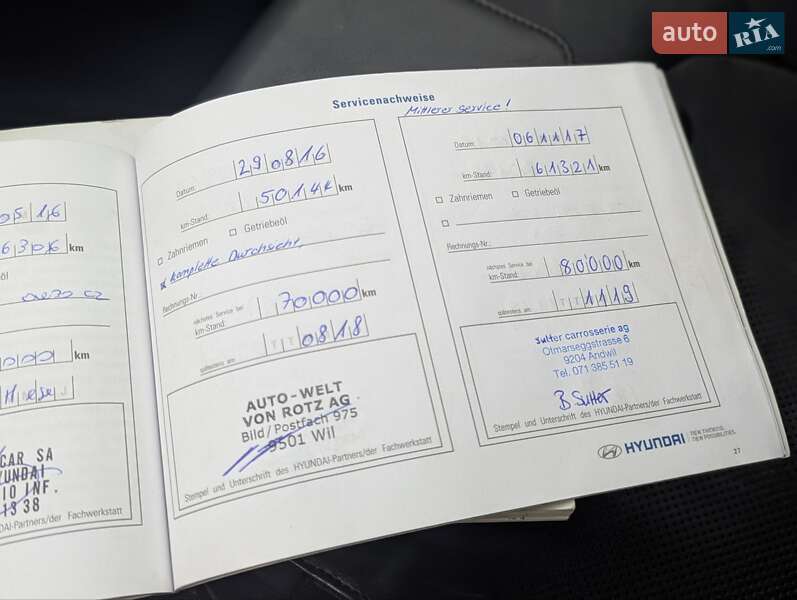 auto RIA .com
05 16
km
km
CAR SA
HYUNDAI
IO INF.
HYUNDAI-Partners/der Fachwerkstatt
Servicenachweise
Datum: 290816
km-Stand: km
Zahnriemen Getriebeöl
komplette Durchsicht,
Rechnungs-Nr.:
nächstes Service bei km-Stand: 70000 km
spätestens am: T T 0818
AUTO-WELT
VON ROTZ AG
Bild/Postfach 975
9501 Wil
Stempel und Unterschrift des HYUNDAI-Partners/der Fachwerkstatt
Mittlerer Service!
Datum: 061117
km-Stand: 61321 km
Zahnriemen Getriebeöl
Rechnungs-Nr.:
nächstes Service bei km-Stand: 80000 km
spätestens am: T T 1119
sutter carrosserie ag
Olmarseggstrasse 6
9204 Andwil
Tel. 071 385 51 19
B Sutter
Stempel und Unterschrift des HYUNDAI-Partners/der Fachwerkstatt
HYUNDAI NEW THINKING. NEW POSSIBILITIES.
27